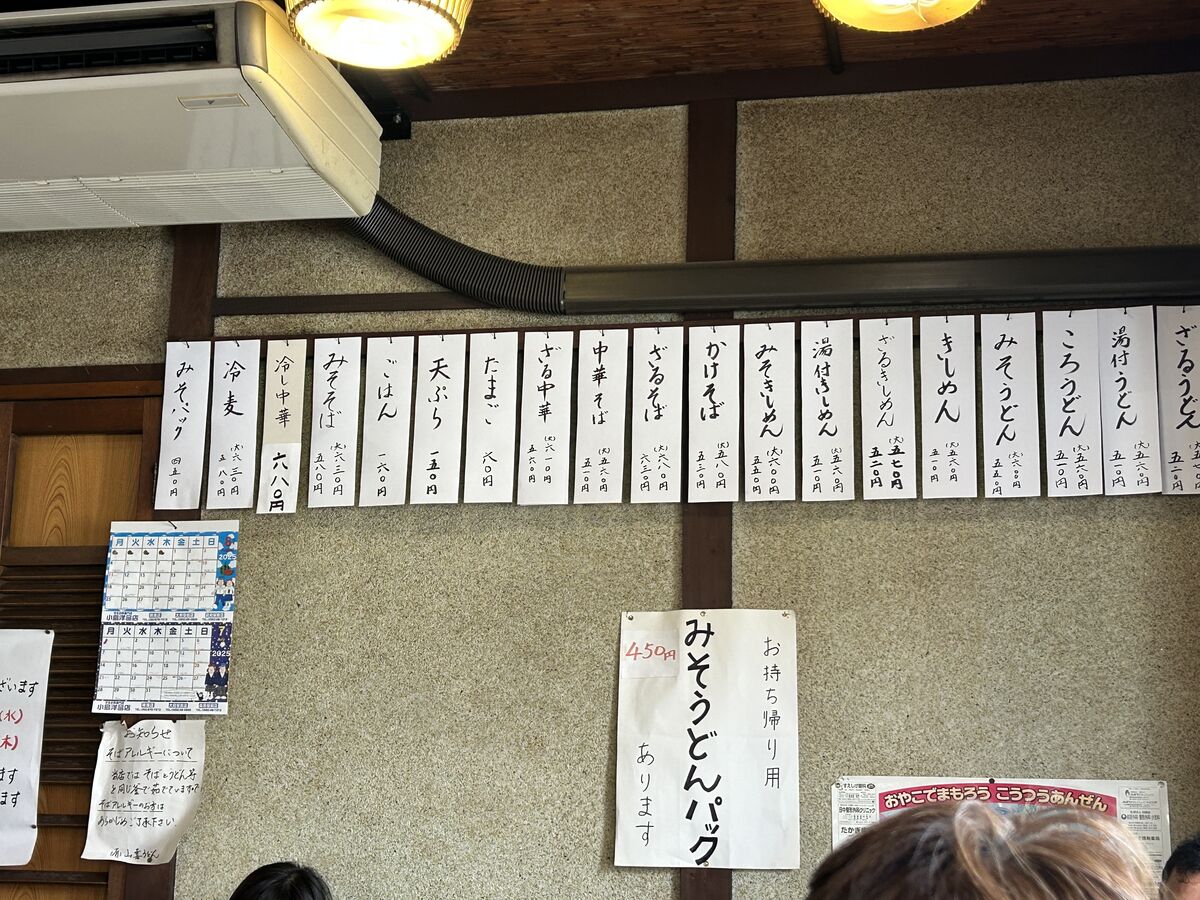 ざるうどん
湯付うどん
(大)五六〇円
五一〇円
ころうどん
(大)五六〇円
五一〇円
みそうどん
(大)六〇〇円
五五〇円
きしめん
(大)五六〇円
五一〇円
ざるきしめん
(大)五七〇円
五二〇円
湯付きしめん
(大)五六〇円
五一〇円
みそきしめん
(大)六〇〇円
五五〇円
かけそば
(大)五八〇円
五三〇円
ざるそば
(大)六八〇円
六三〇円
中華そば
(大)五六〇円
五一〇円
ざる中華
(大)六一〇円
五六〇円
たまご
六〇円
天ぷら
一五〇円
ごはん
一六〇円
みそそば
(大)六三〇円
五八〇円
冷し中華
六八〇円
冷麦
(大)六三〇円
五八〇円
みそパック
四五〇円
お持ち帰り用
みそうどんパック
450円
あります
月 火 水 木 金 土 日
2025
小島洋品店
月 火 水 木 金 土 日 7
2025
小島洋品店
ざいます
(水)
木)
ます
ます
お知らせ
そばアレルギーについて
当店ではそばとうどん等
を同じ釜で茹でています
そばアレルギーのお客は
あらかじめご了承下さい
おやこでまもろう こうつうあんぜん